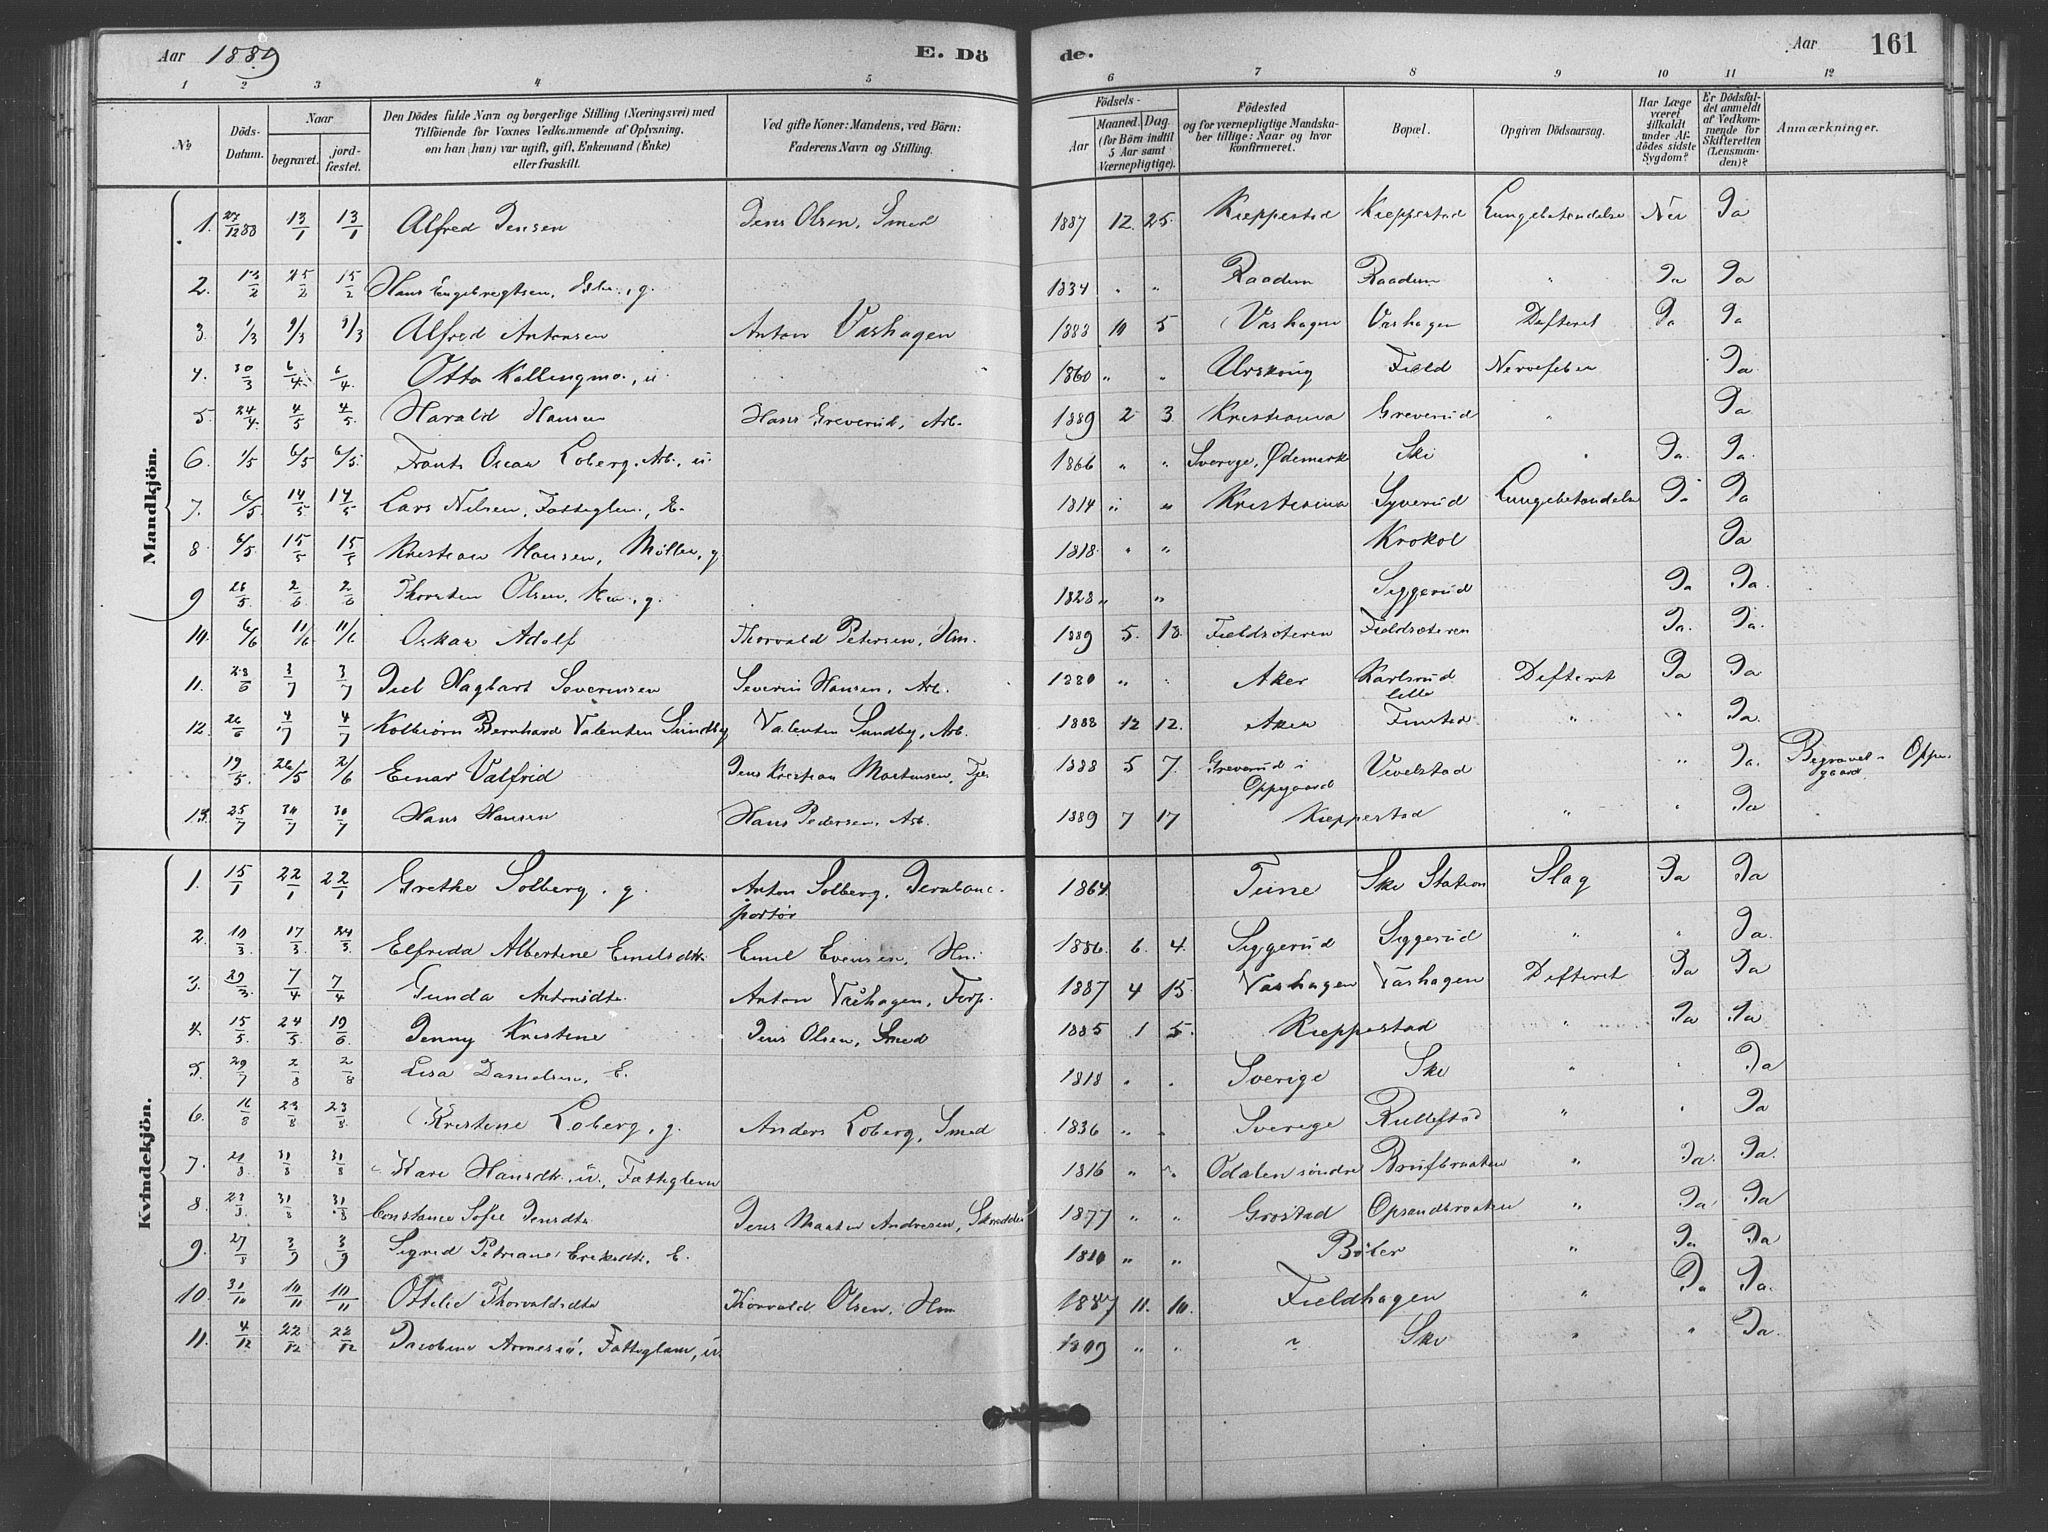 Aar 1889 E. Döde. Aar 161
1 2 3 4 5 6 7 8 9 10 11 12
No Döds-Datum. Naar begravet. jordfæstet. Den Dödes fulde Navn og borgerlige Stilling (Næringsvei) med Tilföiende for Voxnes Vedkommende af Oplysning, om han (hun) var ugift, gift, Enkemand (Enke) eller fraskilt. Ved gifte Koner: Mandens, ved Börn: Faderens Navn og Stilling. Födsels- Aar Maaned. Dag. (for Börn indtil 5 Aar samt Værnepligtige). Födested og for værnepligtige Mandskaber tillige: Naar og hvor konfirmeret. Bopæl. Opgiven Dödsaarsag. Har Læge været tilkaldt under Afdödes sidste Sygdom? Er Dödsfaldet anmeldt af Vedkommende for Skifteretten (Lensmanden)? Anmærkninger.
Mandkjön.
1. 27/12 88 13/1 13/1 Alfred Jensen Jens Olsen, Smed 1887 12. 25. Kjeppestad Kjeppestad Lungebetændelse Nei Ja
2. 13/2 25/2 15/2 Hans Engebregtsen, g. 1834 " " Raadum Raadum " Ja Ja
3. 1/3 9/3 9/3 Alfred Antonsen Anton Vashagen 1888 10 5 Vashagen Vashagen Difterit Ja Ja
4. 30/3 6/4 6/4 Otto Kollingmo, u 1860 " " Urskoug Field Nervefeber Ja
5 24/4 4/5 4/5 Harald Hansen Hans Greverud, Arb. 1889 2 3 Kristiania Greverud " Ja
6 1/5 6/5 6/5 Frants Oscar Loberg, Arb., u. 1866 " " Sverige, Ødemark Ski " Ja. Ja.
7. 6/5 14/5 14/5 Lars Nilsen, Fattiglem, E. 1814 " " Kristiania Syverud Lungebetændelse Ja Ja
8 6/5 15/5 15/5 Kristian Hansen, Møller, g 1818 " " Krokol Ja
9 26/5 2/6 2/6 Thorsten Olsen, g. 1828 " " Siggerud Ja Ja.
10. 6/6 11/6 11/6 Oskar Adolf Thorvald Petersen, Hm. 1889 5. 18. Fieldsæteren Fieldsæteren Ja. Ja.
11. 28/6 3/7 3/7 Juel Hagbart Severinsen Severin Hansen, Arb. 1880 " " Aker Karlsrud lille Difterit Ja Ja
12. 26/6 4/7 4/7 Kolbiørn Bernhard Valentin Sundby Valentin Sundby, Arb. 1888 12 12. Aker Finstad " " Ja.
19/5. 26/5 2/6 Einar Valfrid Jens Kristian Mortensen, 1888 5 7. Greverud i Oppegaard Vevelstad " Ja. Begravet i Oppegaard
13. 25/7 30/7 30/7 Hans Hansen Hans Pedersen, Arb. 1889 7 17 Kjeppestad " " Ja
Kvindekjön.
1. 15/1 22/1 22/1 Grethe Solberg, g. Anton Solberg, Jernbaneportør 1864 Teine Ski Station Slag Ja Ja
2. 10/3 17/3. 24/3 Elfrida Albertine Emilsdtr. Emil Evensen, Hm. 1886. 6. 4. Siggerud Siggerud " " Ja.
3. 29/3. 7/4 7/4 Gunda Antonsdtr. Anton Våshagen, Forp. 1887 4 15 Vashagen Våshagen Difterit Ja Ja
4. 15/5. 24/5 19/6 Jenny Kristine Jens Olsen, Smed 1885 1 5. Kjeppestad " Ja Ja
5. 29/7 2/8 2/8 Lisa Danielsen, E. 1818 " " Sverige Ski " " Ja
6. 16/8 23/8 23/8. Kristine Loberg, g. Anders Loberg, Smed 1836 " " Sverige Rullestad " " Ja
7. 21/8. 31/8 31/8 Kari Hansdtr. u., Fattiglem 1816 " " Odalen søndre Brusbraaten " Ja. Ja.
8. 23/8 31/8 31/8 Constance Sofie Jensdtr Jens Martin Andresen, Skrædder 1877 " " Grøstad Opsandbraaten " Ja Ja
9. 27/8 3/9 3/9 Sigrid Petriane Eriksdtr. E. 1810 " " Bøler " Ja Ja
10. 31/10 10/11 10/11 Ottelie Thorvaldsdtr Thorvald Olsen, Hm 1887 11. 10. Fieldhagen " Ja Ja.
11. 4/12 22/12 22/12 Jacobine Fattiglem, u. 1809 " " " Ski " " Ja.